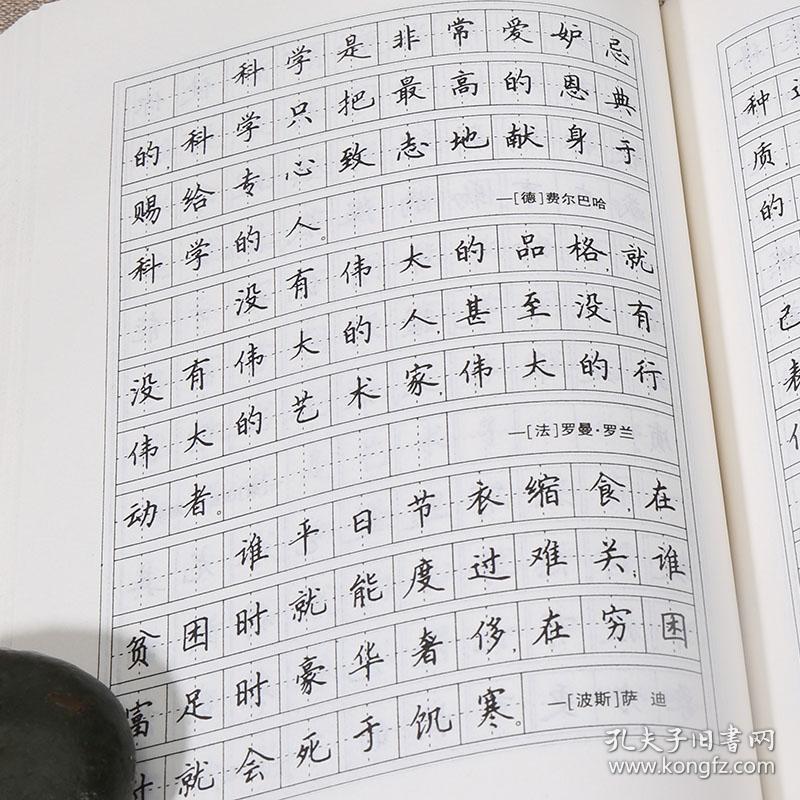 科学是非常爱妒忌
的,科学只把最高的恩典
赐给专心致志地献身于
科学的人。 —[德]费尔巴哈
没有伟大的品格,就
没有伟大的人,甚至没有
伟大的艺术家,伟大的行
动者。 —[法]罗曼·罗兰
谁平日节衣缩食,在
贫困时就能度过难关;谁
富足时豪华奢侈,在穷困
时就会死于饥寒。 —[波斯]萨 迪
种
质,
的
己
孔夫子旧书网
www.kongfz.com